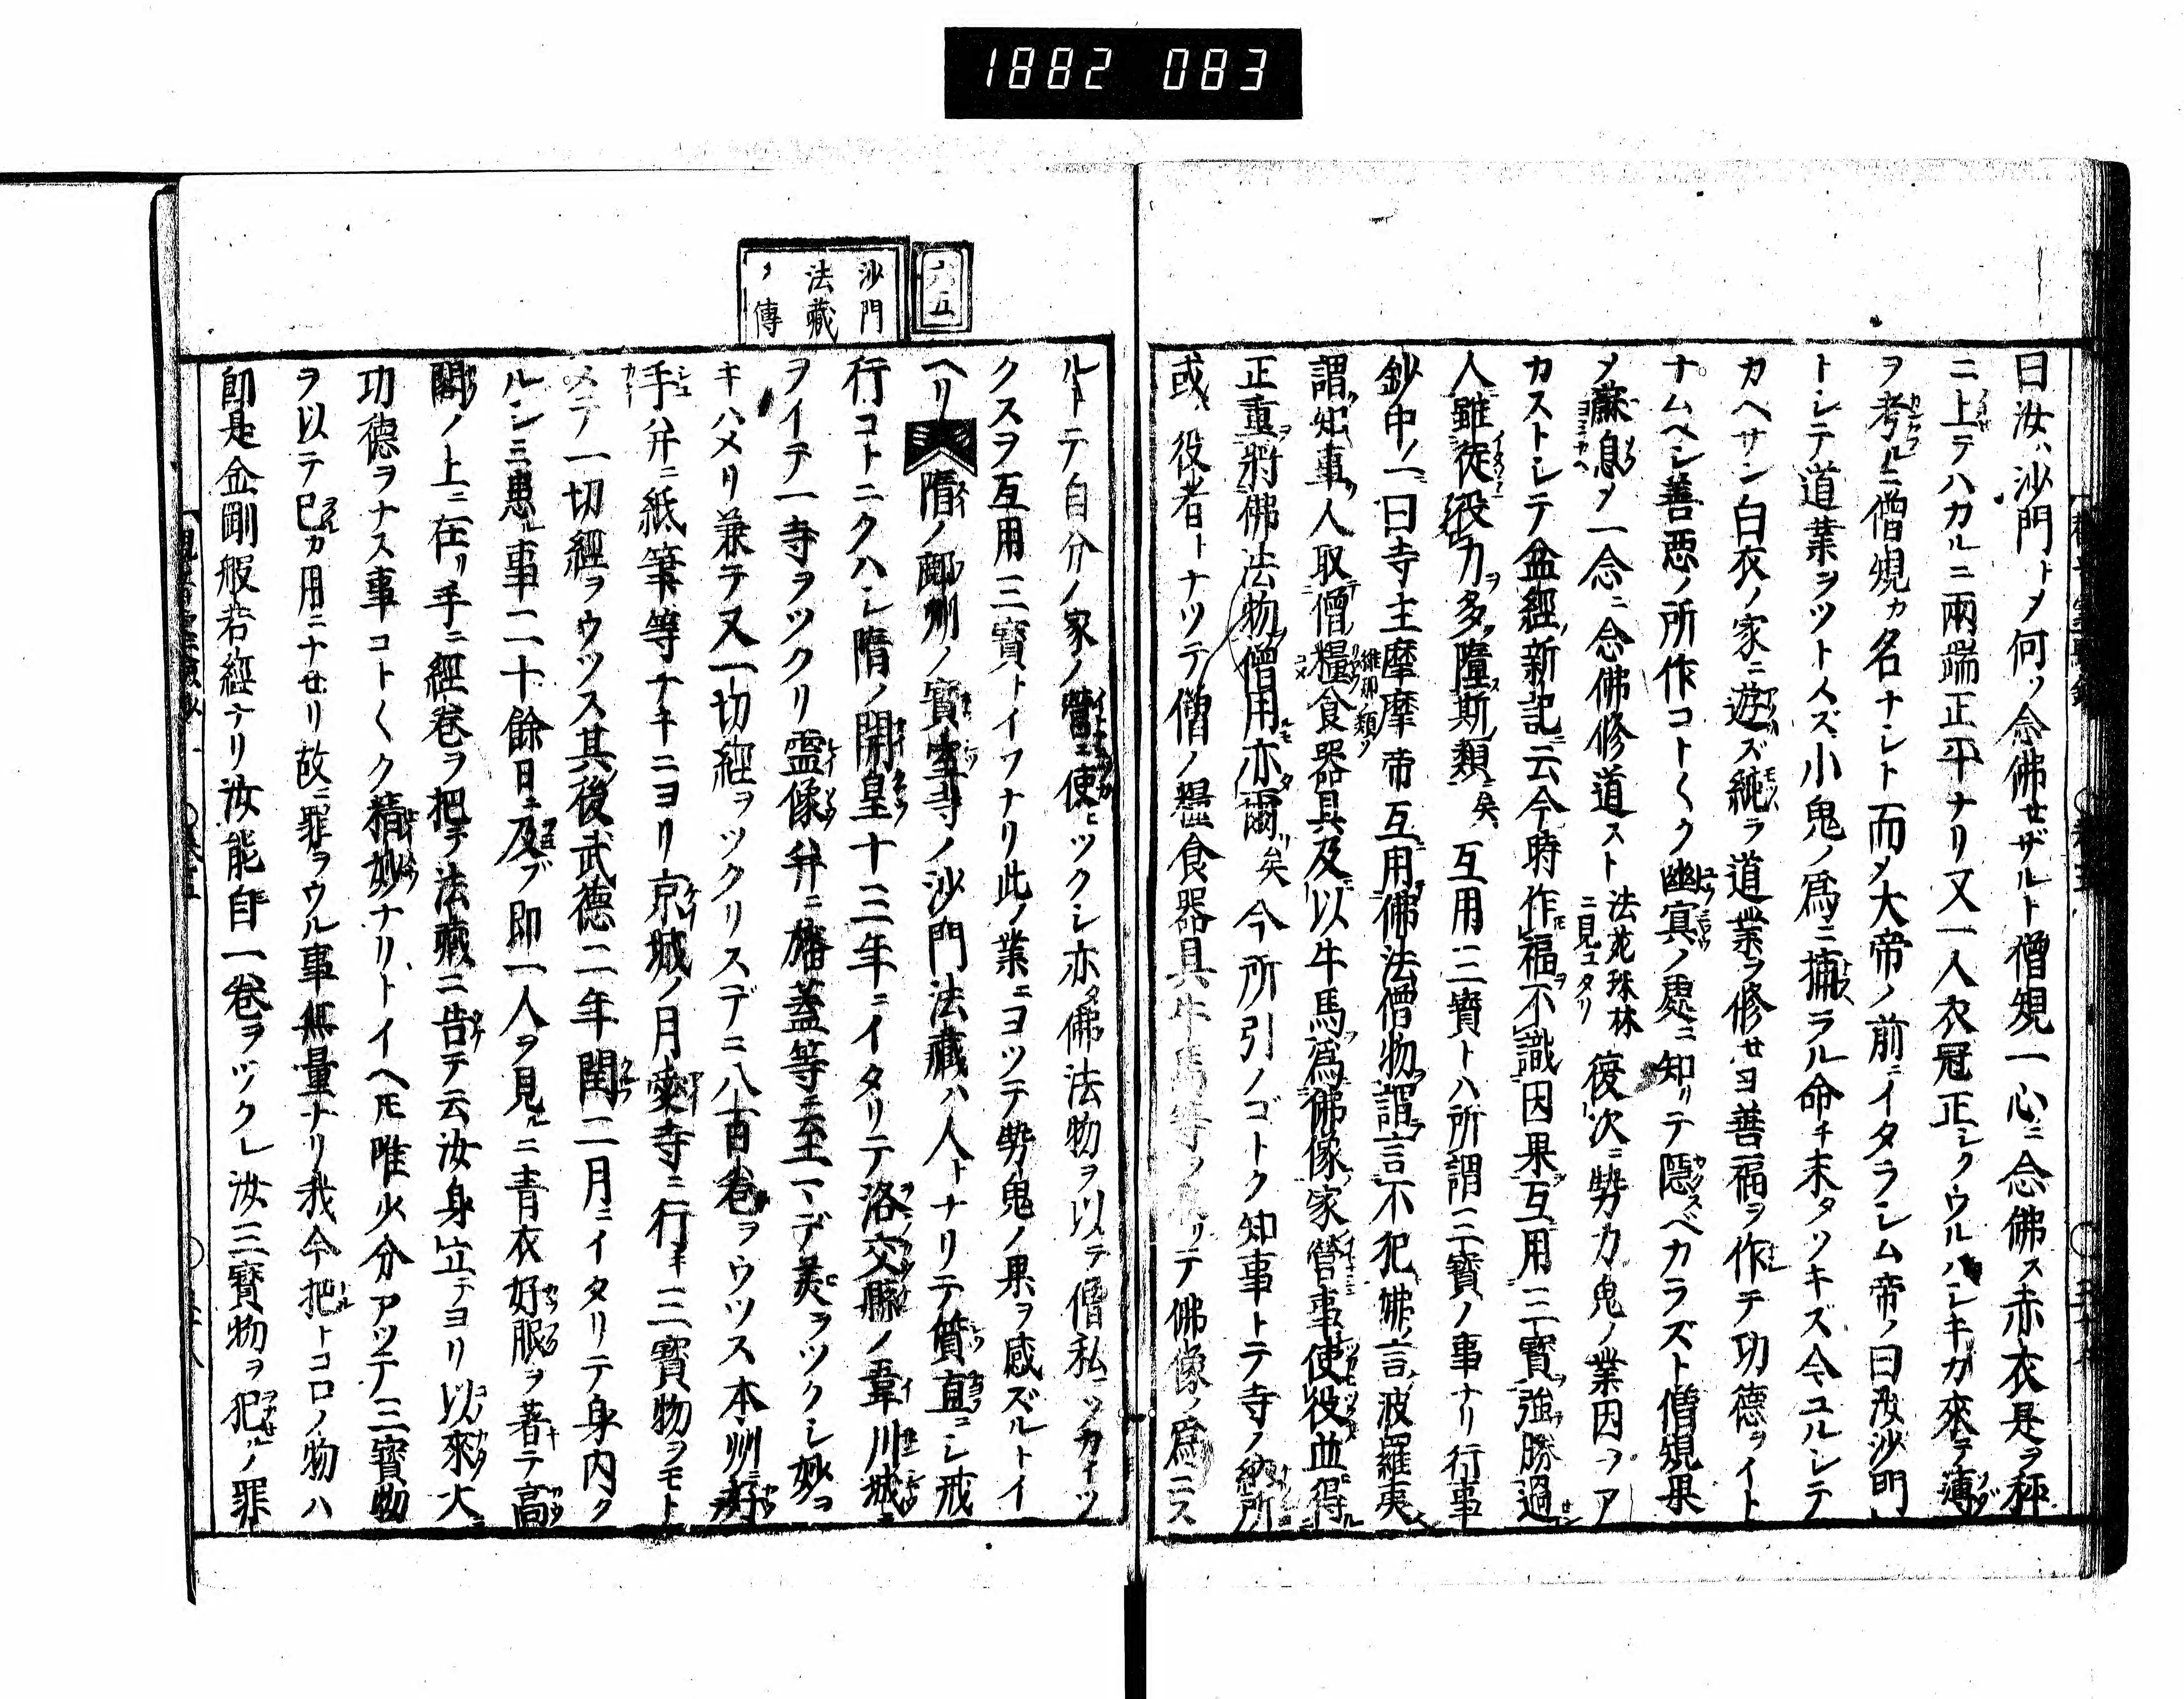 1882 083
曰汝ハ沙門トメ何ソ念佛セザルト僧規一心ニ念佛ス赤衣是ヲ秤
ニ上テハカルニ兩端正平ナリ又一人衣冠正シクウルハシキカ來テ薄
ヲ考ルニ僧規カ名ナシト而メ大帝ノ前ニイタラシム帝ノ曰汝沙門
トシテ道業ヲツトメズ小鬼ノ爲ニ捕ラル命チ未タツキズ今ユルシテ
カヘサン白衣ノ家ニ遊ズ純ラ道業ヲ修セヨ善福ヲ作テ功德ヲイト
ナムヘシ善惡ノ所作コト〱ク幽冥ノ處ニ知リテ隱スベカラズト僧規果
メ蘇息メ一念ニ念佛修道スト法苑珠林ニ見ユタリ復次ニ勢力鬼ノ業因ヲア
カストシテ盆經新記ニ云今時作福不識因果互用三寶強勝過
人雖徒役力多墮斯類矣互用三寶トハ所謂三寶ノ事ナリ行事
鈔中ノ一曰寺主摩摩帝互用佛法僧物謂言不犯佛言波羅夷
謂知事人取僧糧食器具及以牛馬爲佛像家營事使役並得
正重將佛法物僧用亦爾矣今所引ノゴトク知事トテ寺ノ納所
或役者トナツテ僧ノ糧食器具牛馬等ヲリテ佛像ノ爲ニス
ルトテ自分ノ家ノ營ニ使ヒツクシ亦佛法物ヲ以テ僧私ニツカイツ
クスヲ互用三寶トイフナリ此ノ業ニヨツテ勢鬼ノ果ヲ感ズルトイ
ヘリ隋ノ鄜州ノ寶室寺ノ沙門法藏ハ人トナリテ質直ニシ戒
行コトニクハシ隋ノ開皇十三年ニイタリテ洛交縣ノ韋川城ニ
ヲイテ一寺ヲツクリ靈像并ニ幡蓋等ニ至マデ美ヲツクシ妙ヲ
キハメリ兼テ又一切經ヲツクリスデニ八百卷ヲウツス本州好
手ハ并ニ紙筆等ナキニヨリ京城ノ月愛寺ニ行キ三寶物ヲモト
メテ一切經ヲウツス其後武德二年閏二月ニイタリテ身内ク
ルシミ患ル事二十餘日ニ及ブ即一人ヲ見ルニ青衣好服ヲ著テ高
閣ノ上ニ在リ手ニ經卷ヲ把テ法藏ニ告テ云汝身立テヨリ以來大
功德ヲナス事コト〱ク精妙ナリトイヘモ唯少分アツテ三寶物
ヲ以テ已カ用ニナセリ故ニ罪ヲウル事無量ナリ我今把トコロノ物ハ
卽是金剛般若經ナリ汝能自一卷ヲツクレ汝三寶物ヲ犯ルノ罪
六五
沙門
法藏
ノ傳